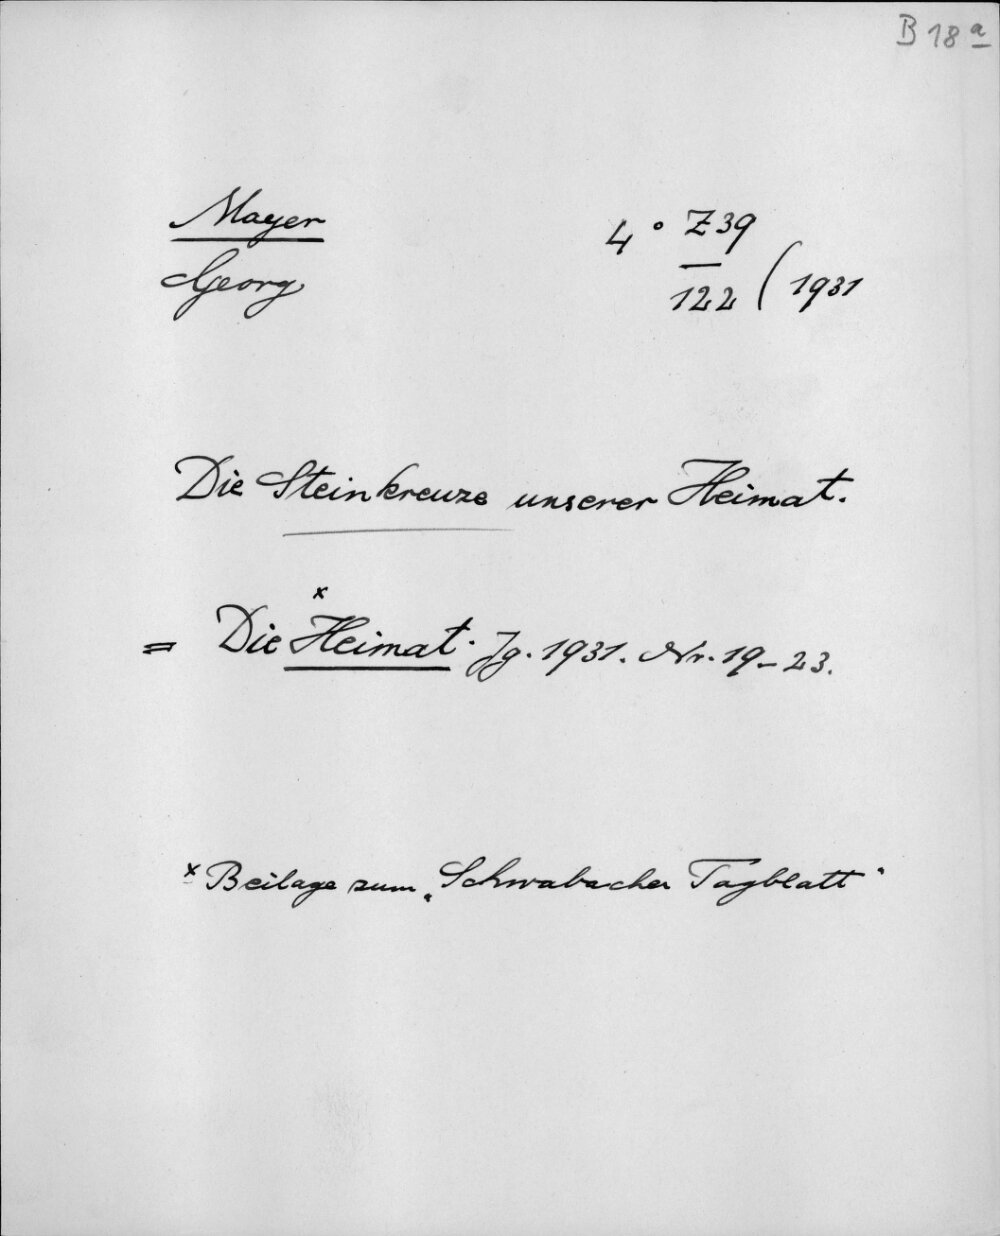 B 18 a
Mayer
Georg
4° Z 39
122 (1931
Die Steinkreuze unserer Heimat.
= Die Heimat x. Jg. 1931. Nr. 19-23.
x Beilage zum „Schwabacher Tagblatt"